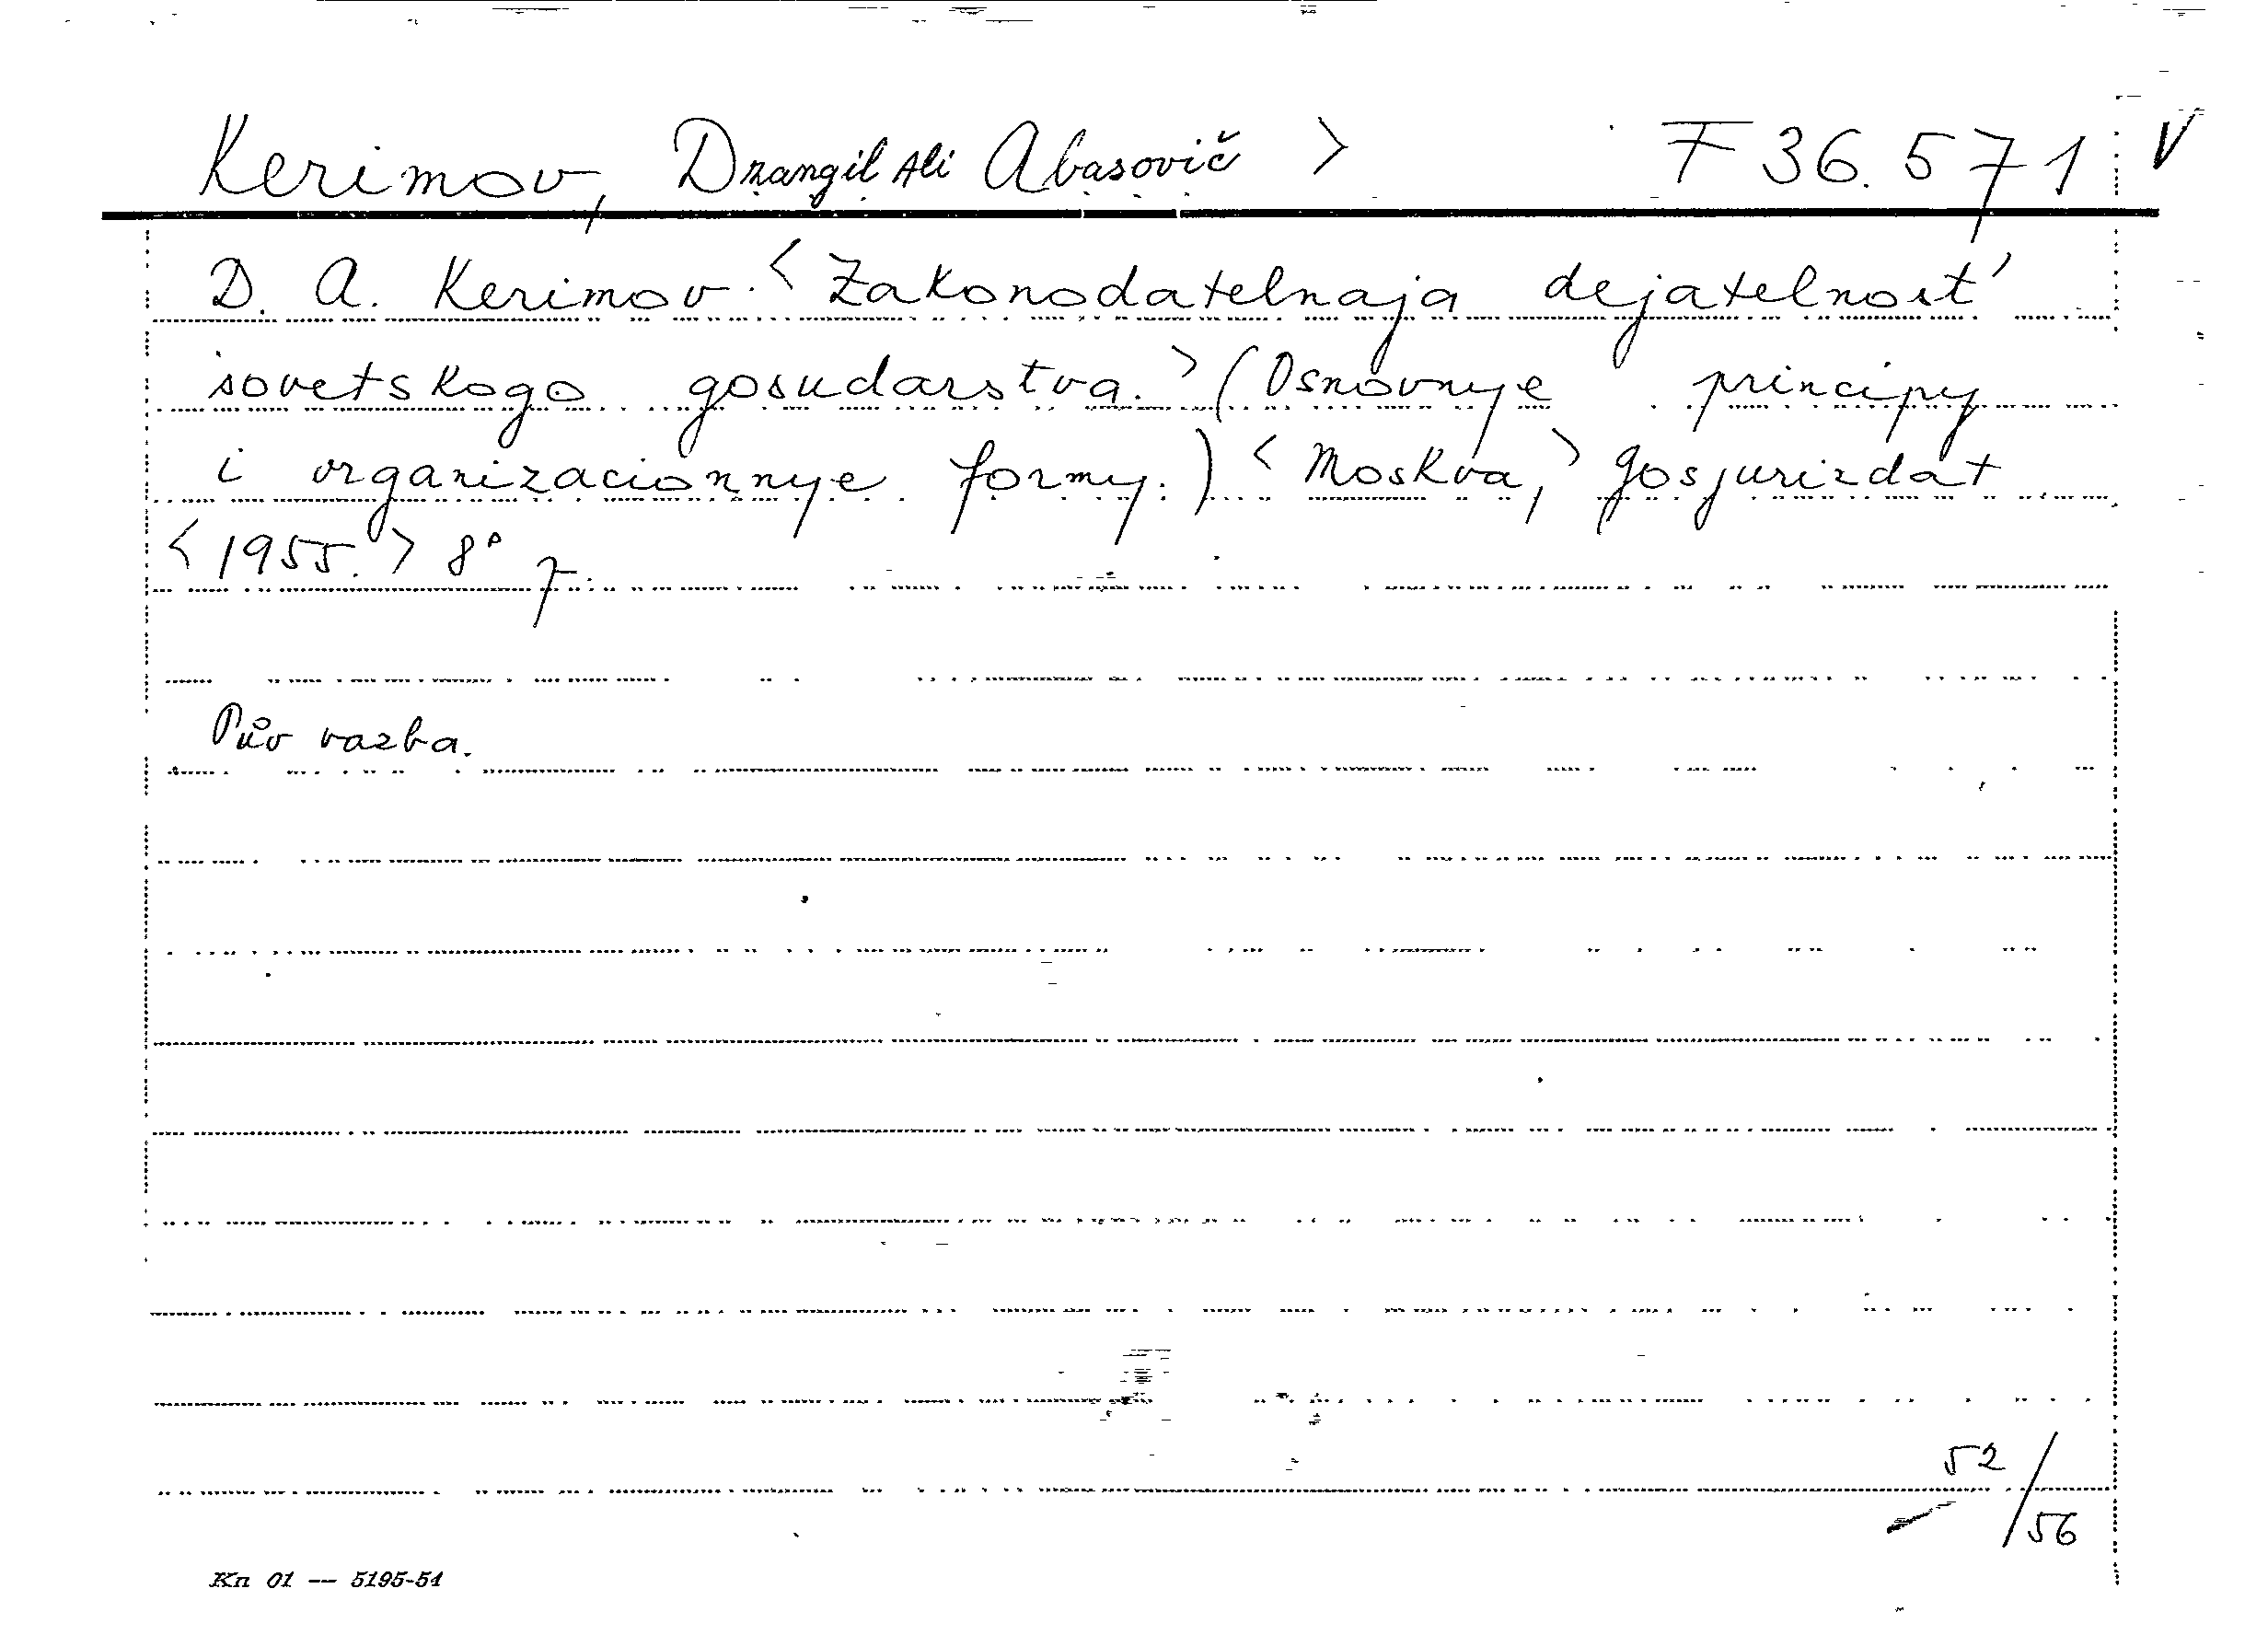 Kerimov, Dzangil Ali Abasovič > F 36.571 V
D. A. Kerimov. < Zakonodatelnaja dejatelnost'
sovetskogo gosudarstva. > (Osnovnye principy
i organizacionnye formy.) < Moskva, > Gosjurizdat
< 1955. > 8°
Pův vazba.
52/56
Kn 01 — 5195-54